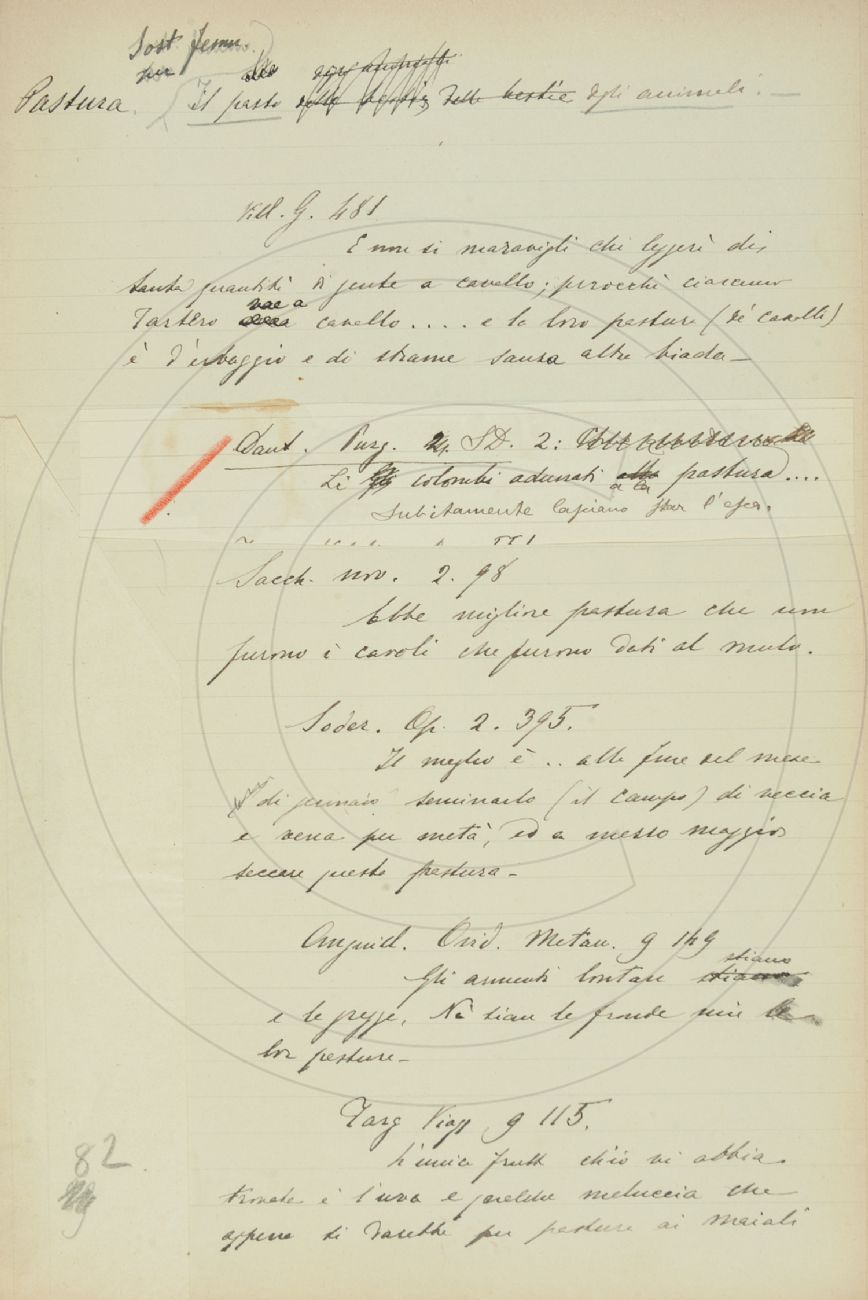 Sost femm.
Pastura. il pasto delle bestie delle bestie degli animali. —
Vill. G. 481
E non si maravigli chi leggerà di
tanta quantità di gente a cavallo; perocchè ciascuno
Tartero vae a cavallo.... e le loro pasture (de' cavalli)
è d'erbaggio e di strame sanza altra biada —
Dant. Purg. SD. 2:
Li colombi adunati a la pastura....
Subitamente lasciano star l'esca.
Sacch. nov. 2. 98
Ebbe migliore pastura che non
furono i cavoli che furono dati al mulo.
Soder. Op. 2. 395.
Il meglio è .. alla fine del mese
di gennaio seminarlo (il campo) di veccia
e vena per metà, ed a mezzo maggio
seccare questa pastura —
Anguill. Ovid. Metam. 9 149
Gli armenti lontan stiano stiano
e le gregge, Nè sian le fronde mie le
lor pasture —
Targ Viagg 9 115.
L'unica frutt ch'io vi abbia
trovata è l'uva e qualche meluccia che
appena si darebbe per pastura ai maiali
82